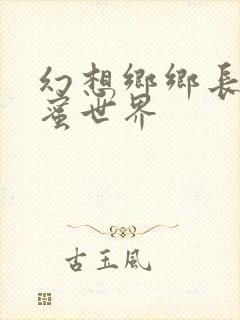 幻想鄉鄉長
蜜世界
古玉風